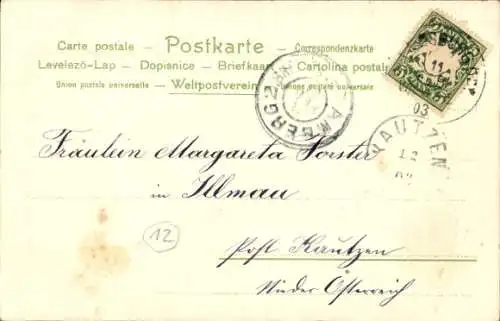 Carte postale – Postkarte – Correspondenzkarte
Levelező-Lap – Dopisnice – Briefkaart – Cartolina postale
Union postale universelle – Weltpostverein – Union postale universale
AMBERG 2
03
KAUTZEN
12
Fräulein Margareta Forster
in Illmau
12
Post Kautzen
Nieder Österreich